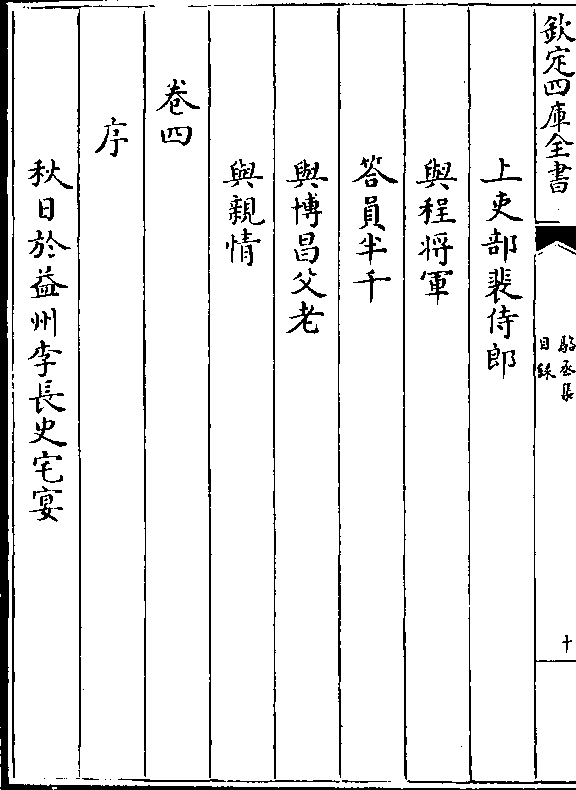 欽定四庫全書
駱丞集
目録
十
上吏部裴侍郎
與程將軍
答員半千
與博昌父老
與親情
卷四
序
秋日於益州李長史宅宴